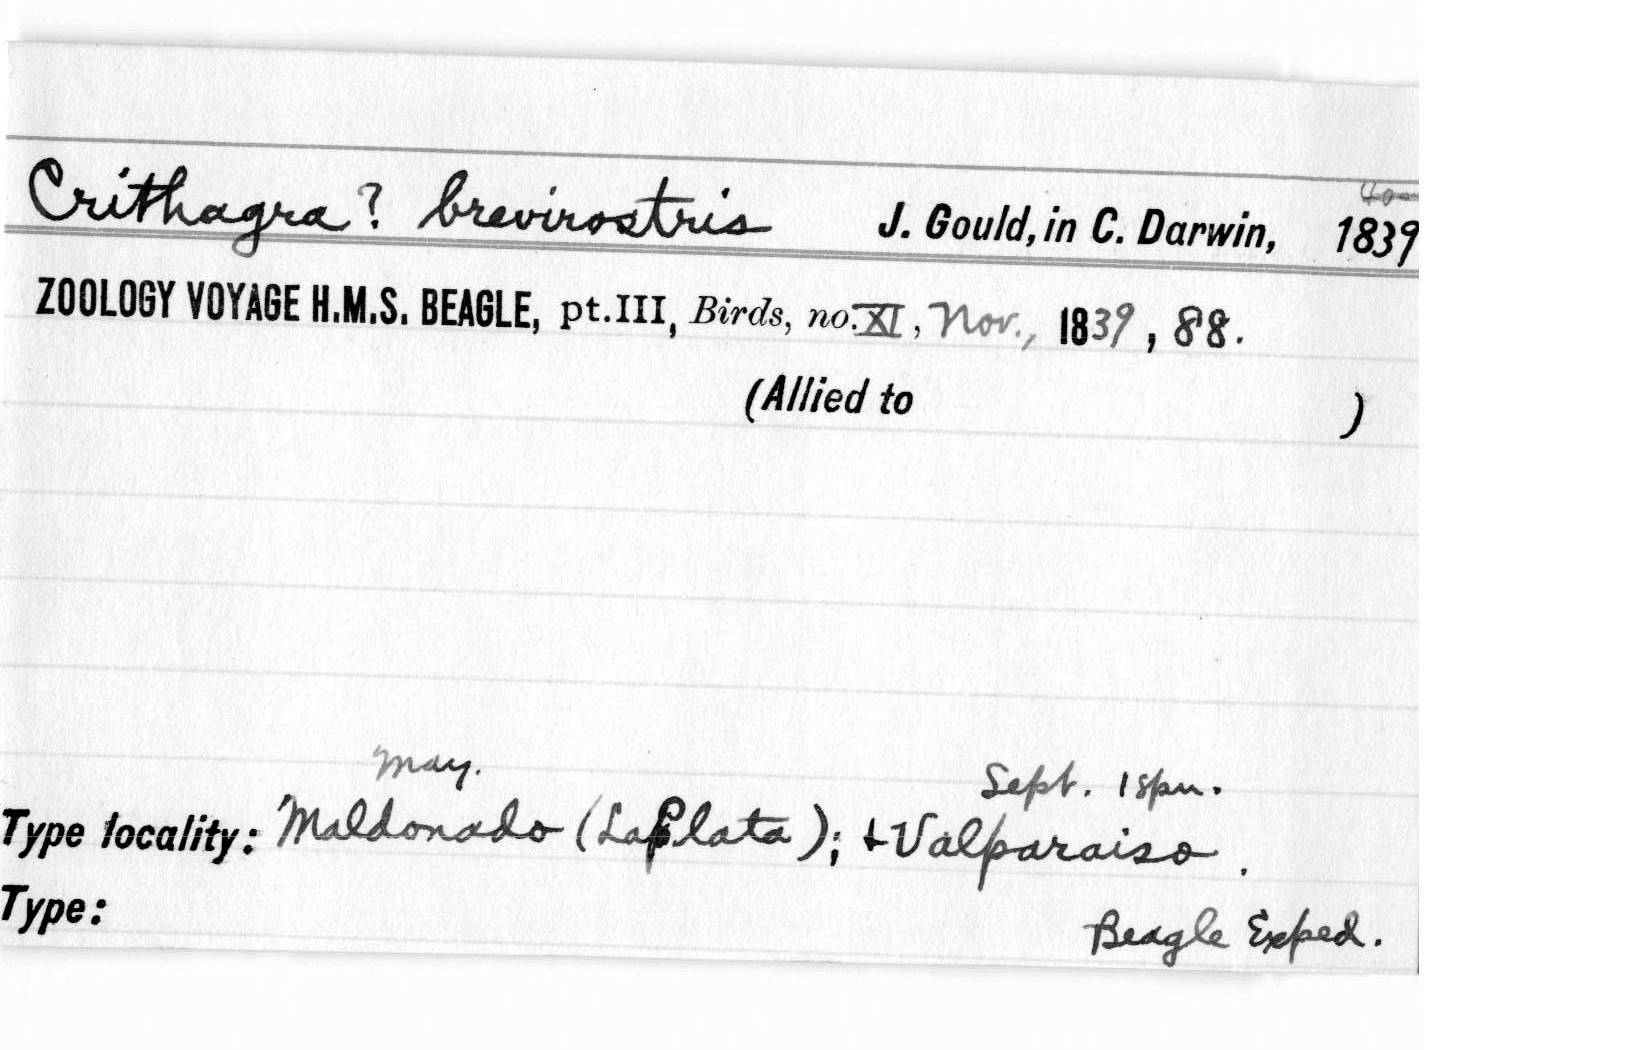 Crithagra? brevirostris J. Gould, in C. Darwin, 1839
ZOOLOGY VOYAGE H.M.S. BEAGLE, pt.III, Birds, no. XI, Nov., 1839, 88.
(Allied to )
May. Sept. 1 spn.
Type locality: Maldonado (La Plata); + Valparaiso.
Type:
Beagle Exped.